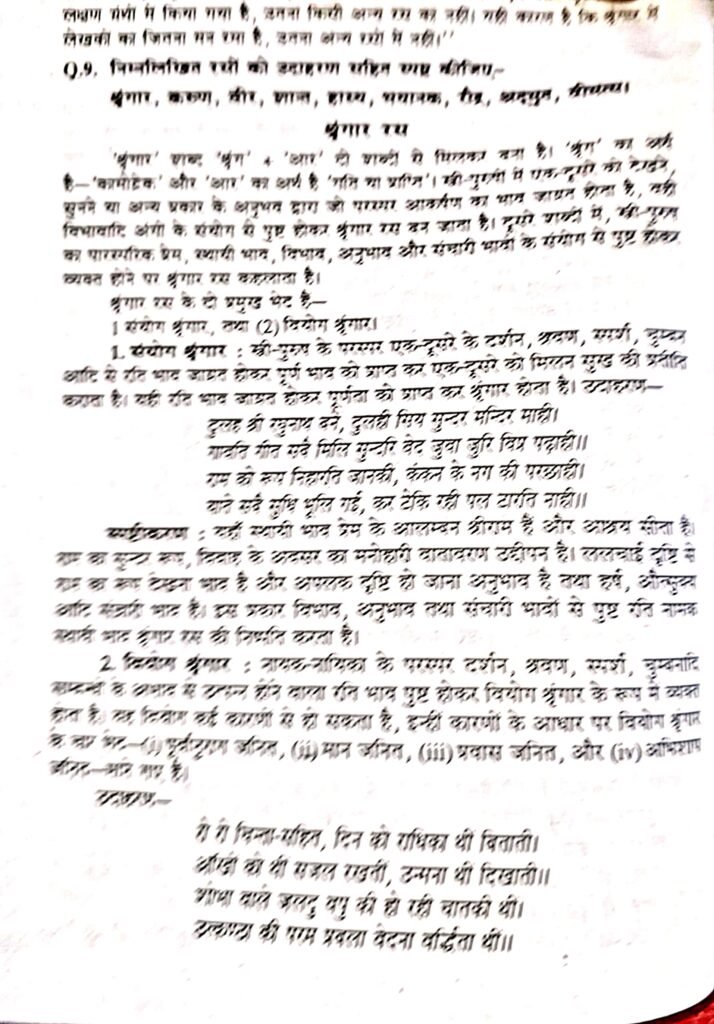 लक्षण ग्रंथों में किया गया है, उतना किसी अन्य रस का नहीं। यही कारण है कि श्रृंगार में
लेखकों का जितना मन रमा है, उतना अन्य रसों में नहीं।''
Q.9. निम्नलिखित रसों को उदाहरण सहित स्पष्ट कीजिए,-
श्रृंगार, करूण, वीर, शान्त, हास्य, भयानक, रौद्र, अदभुत, वीभत्स।
श्रृंगार रस
'श्रृंगार' शब्द 'श्रृंग' + 'आर' दो शब्दों से मिलकर बना है। 'श्रृंग' का अर्थ
है—'कामोद्रेक' और 'आर' का अर्थ है 'गति या प्राप्ति'। स्त्री-पुरुषों में एक-दूसरे को देखने,
सुनने या अन्य प्रकार के अनुभव द्वारा जो परस्पर आकर्षण का भाव जाग्रत होता है, वही
विभावादि अंगों के संयोग से पुष्ट होकर श्रृंगार रस बन जाता है। दूसरे शब्दों में, स्त्री-पुरुष
का पारस्परिक प्रेम, स्थायी भाव, विभाव, अनुभाव और संचारी भावों के संयोग से पुष्ट होकर
व्यक्त होने पर श्रृंगार रस कहलाता है।
श्रृंगार रस के दो प्रमुख भेद हैं—
1 संयोग श्रृंगार, तथा (2) वियोग श्रृंगार।
1. संयोग श्रृंगार : स्त्री-पुरुष के परस्पर एक-दूसरे के दर्शन, श्रवण, स्पर्श, चुम्बन
आदि से रति भाव जाग्रत होकर पूर्ण भाव को प्राप्त कर एक-दूसरे को मिलन सुख की प्रतीति
कराता है। यही रति भाव जाग्रत होकर पूर्णता को प्राप्त कर श्रृंगार होता है। उदाहरण—
दुलह श्री रघुनाथ बने, दुलही सिय सुन्दर मन्दिर माही।
गावति गीत सबै मिलि सुन्दरि वेद जुवा जुरि विप्र पढ़ाही॥
राम को रूप निहारति जानकी, कंकन के नग की परछाही।
याते सबै सुधि भूलि गई, कर टेकि रही पल टारति नाही॥
स्पष्टीकरण : यहाँ स्थायी भाव प्रेम के आलम्बन श्रीराम हैं और आश्रय सीता है।
राम का सुन्दर रूप, विवाह के अवसर का मनोहारी वातावरण उद्दीपन है। ललचाई दृष्टि से
राम का रूप देखना भाव है और अपलक दृष्टि हो जाना अनुभाव है तथा हर्ष, औत्सुक्य
आदि संचारी भाव हैं। इस प्रकार विभाव, अनुभाव तथा संचारी भावों से पुष्ट रति नामक
स्थायी भाव श्रृंगार रस की निष्पति करता है।
2. वियोग श्रृंगार : नायक-नायिका के परस्पर दर्शन, श्रवण, स्पर्श, चुम्बनादि
सम्बन्धों के अभाव से उत्पन्न होने वाला रति भाव पुष्ट होकर वियोग श्रृंगार के रूप में व्यक्त
होता है। यह वियोग कई कारणों से हो सकता है, इन्हीं कारणों के आधार पर वियोग श्रृंगार
के चार भेद—(i) पूर्वानुराग जनित, (ii) मान जनित, (iii) प्रवास जनित, और (iv) अभिशाप
जनित—माने गए हैं।
उदाहरण-
रो रो चिन्ता-सहित, दिन को राधिका थीं बिताती।
आँखों को थी सजल रखतीं, उन्मना थीं दिखाती॥
शोभा वाले जलद वपु की हो रही चातकी थी।
उत्कण्ठा की परम प्रबला वेदना वर्द्धिता थी॥